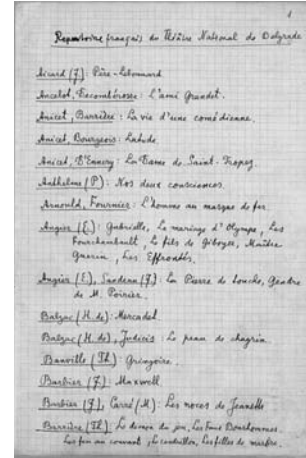 1
Repertoire français du Théâtre National de Belgrade
Aicard (J.): Père-Lebonnard
Ancelot, Decomberousse: L'ami Grandet.
Anicet, Barrière: La vie d'une comédienne.
Anicet, Bourgeois: Latude
Anicet, D'Ennery: La Dame de Saint-Tropez
Anthelme (P): Nos deux consciences.
Arnould, Fournier: L'homme au masque de fer.
Augier (E.): Gabrielle, Le mariage d'Olympe, Les
Fourchambault, Le fils de Giboyer, Maître
Guerin, Les Effrontés.
Augier (E.), Sandeau (J.): La Pierre de touche, Gendre
de M. Poirier.
Balzac (H. de): Mercadet.
Balzac (H. de), Judicis: Le peau de chagrin.
Banville (Th.): Gringoire.
Barbier (J.): Maxwell.
Barbier (J.), Carré (M): Les noces de Jeannette
Barrière (Th.): Le démon du jeu, Les Faux Bonhommes.
Le feu au couvent, Les filles de marbre.